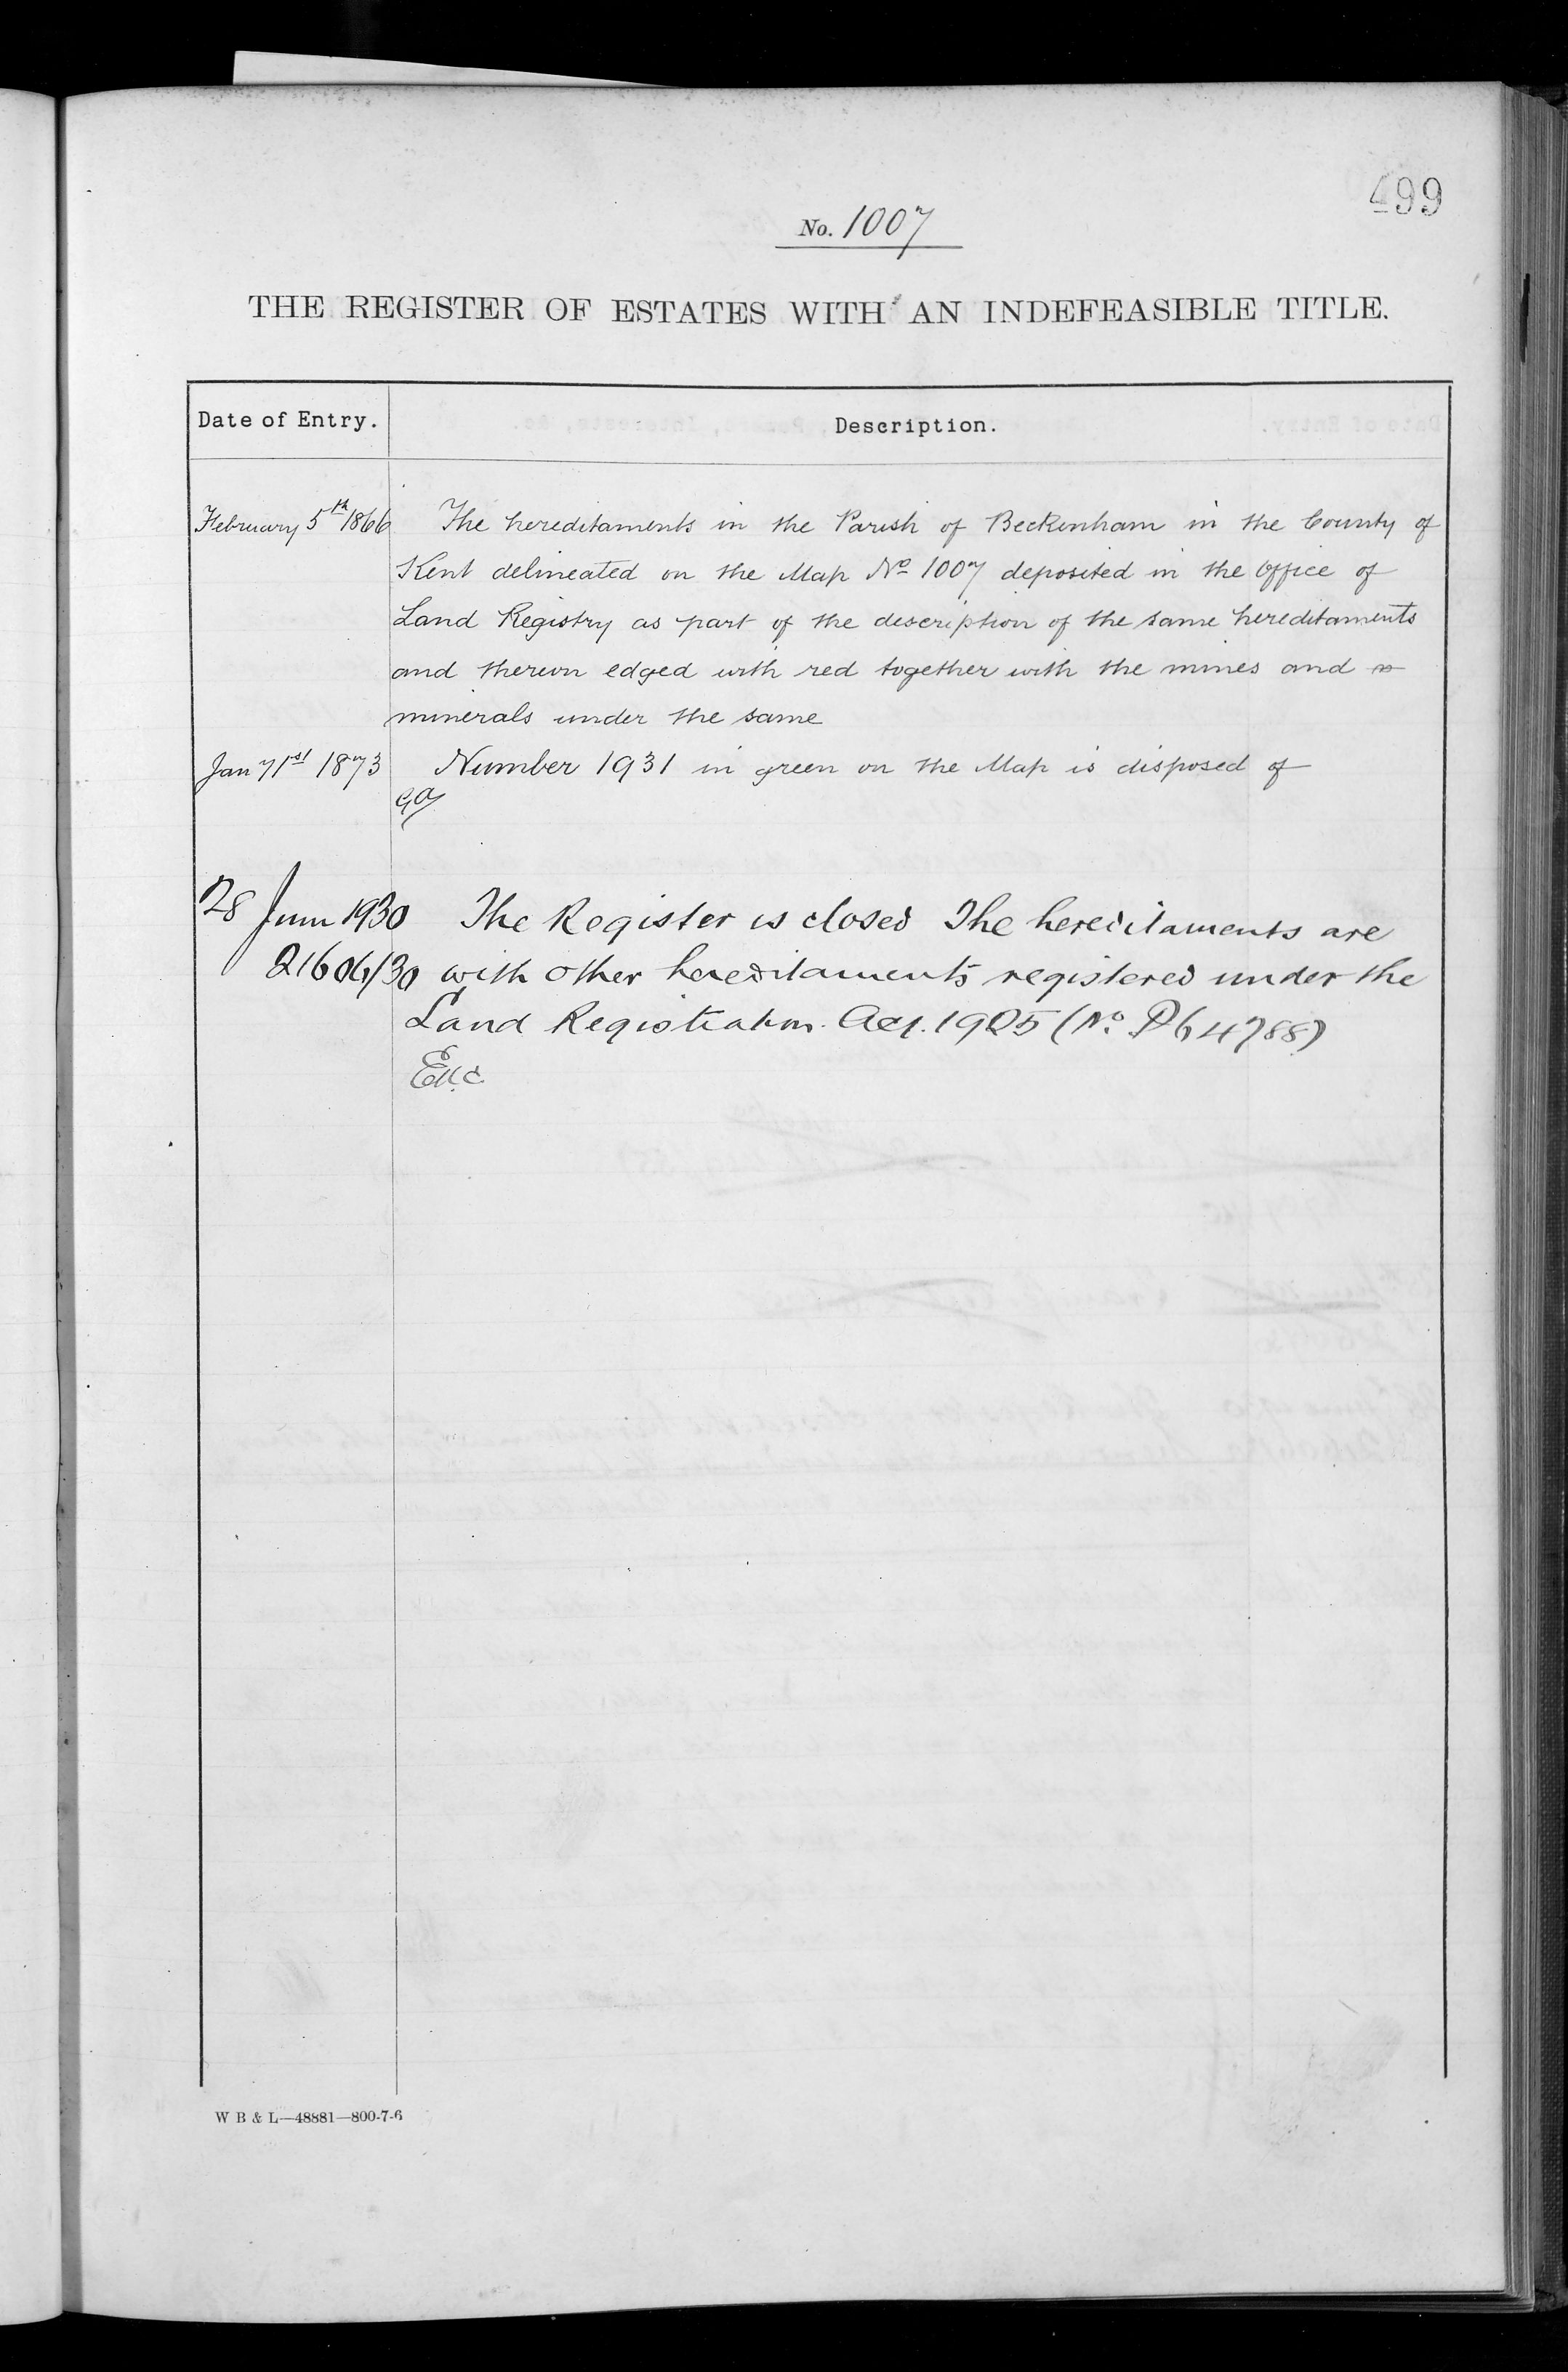 499
No. 1007
THE REGISTER OF ESTATES WITH AN INDEFEASIBLE TITLE.
Date of Entry. Description.
February 5th 1866 The hereditaments in the Parish of Beckenham in the County of
Kent delineated on the Map No 1007 deposited in the Office of
Land Registry as part of the description of the same hereditaments
and thereon edged with red together with the mines and
minerals under the same
Jan 71st 1873 Number 1931 in green on the Map is disposed of
28 June 1930 The Register is closed The hereditaments are
21606/30 with other hereditaments registered under the
Land Registration Act. 1925 (No. P64788)
W B & L—48881—800-7-6